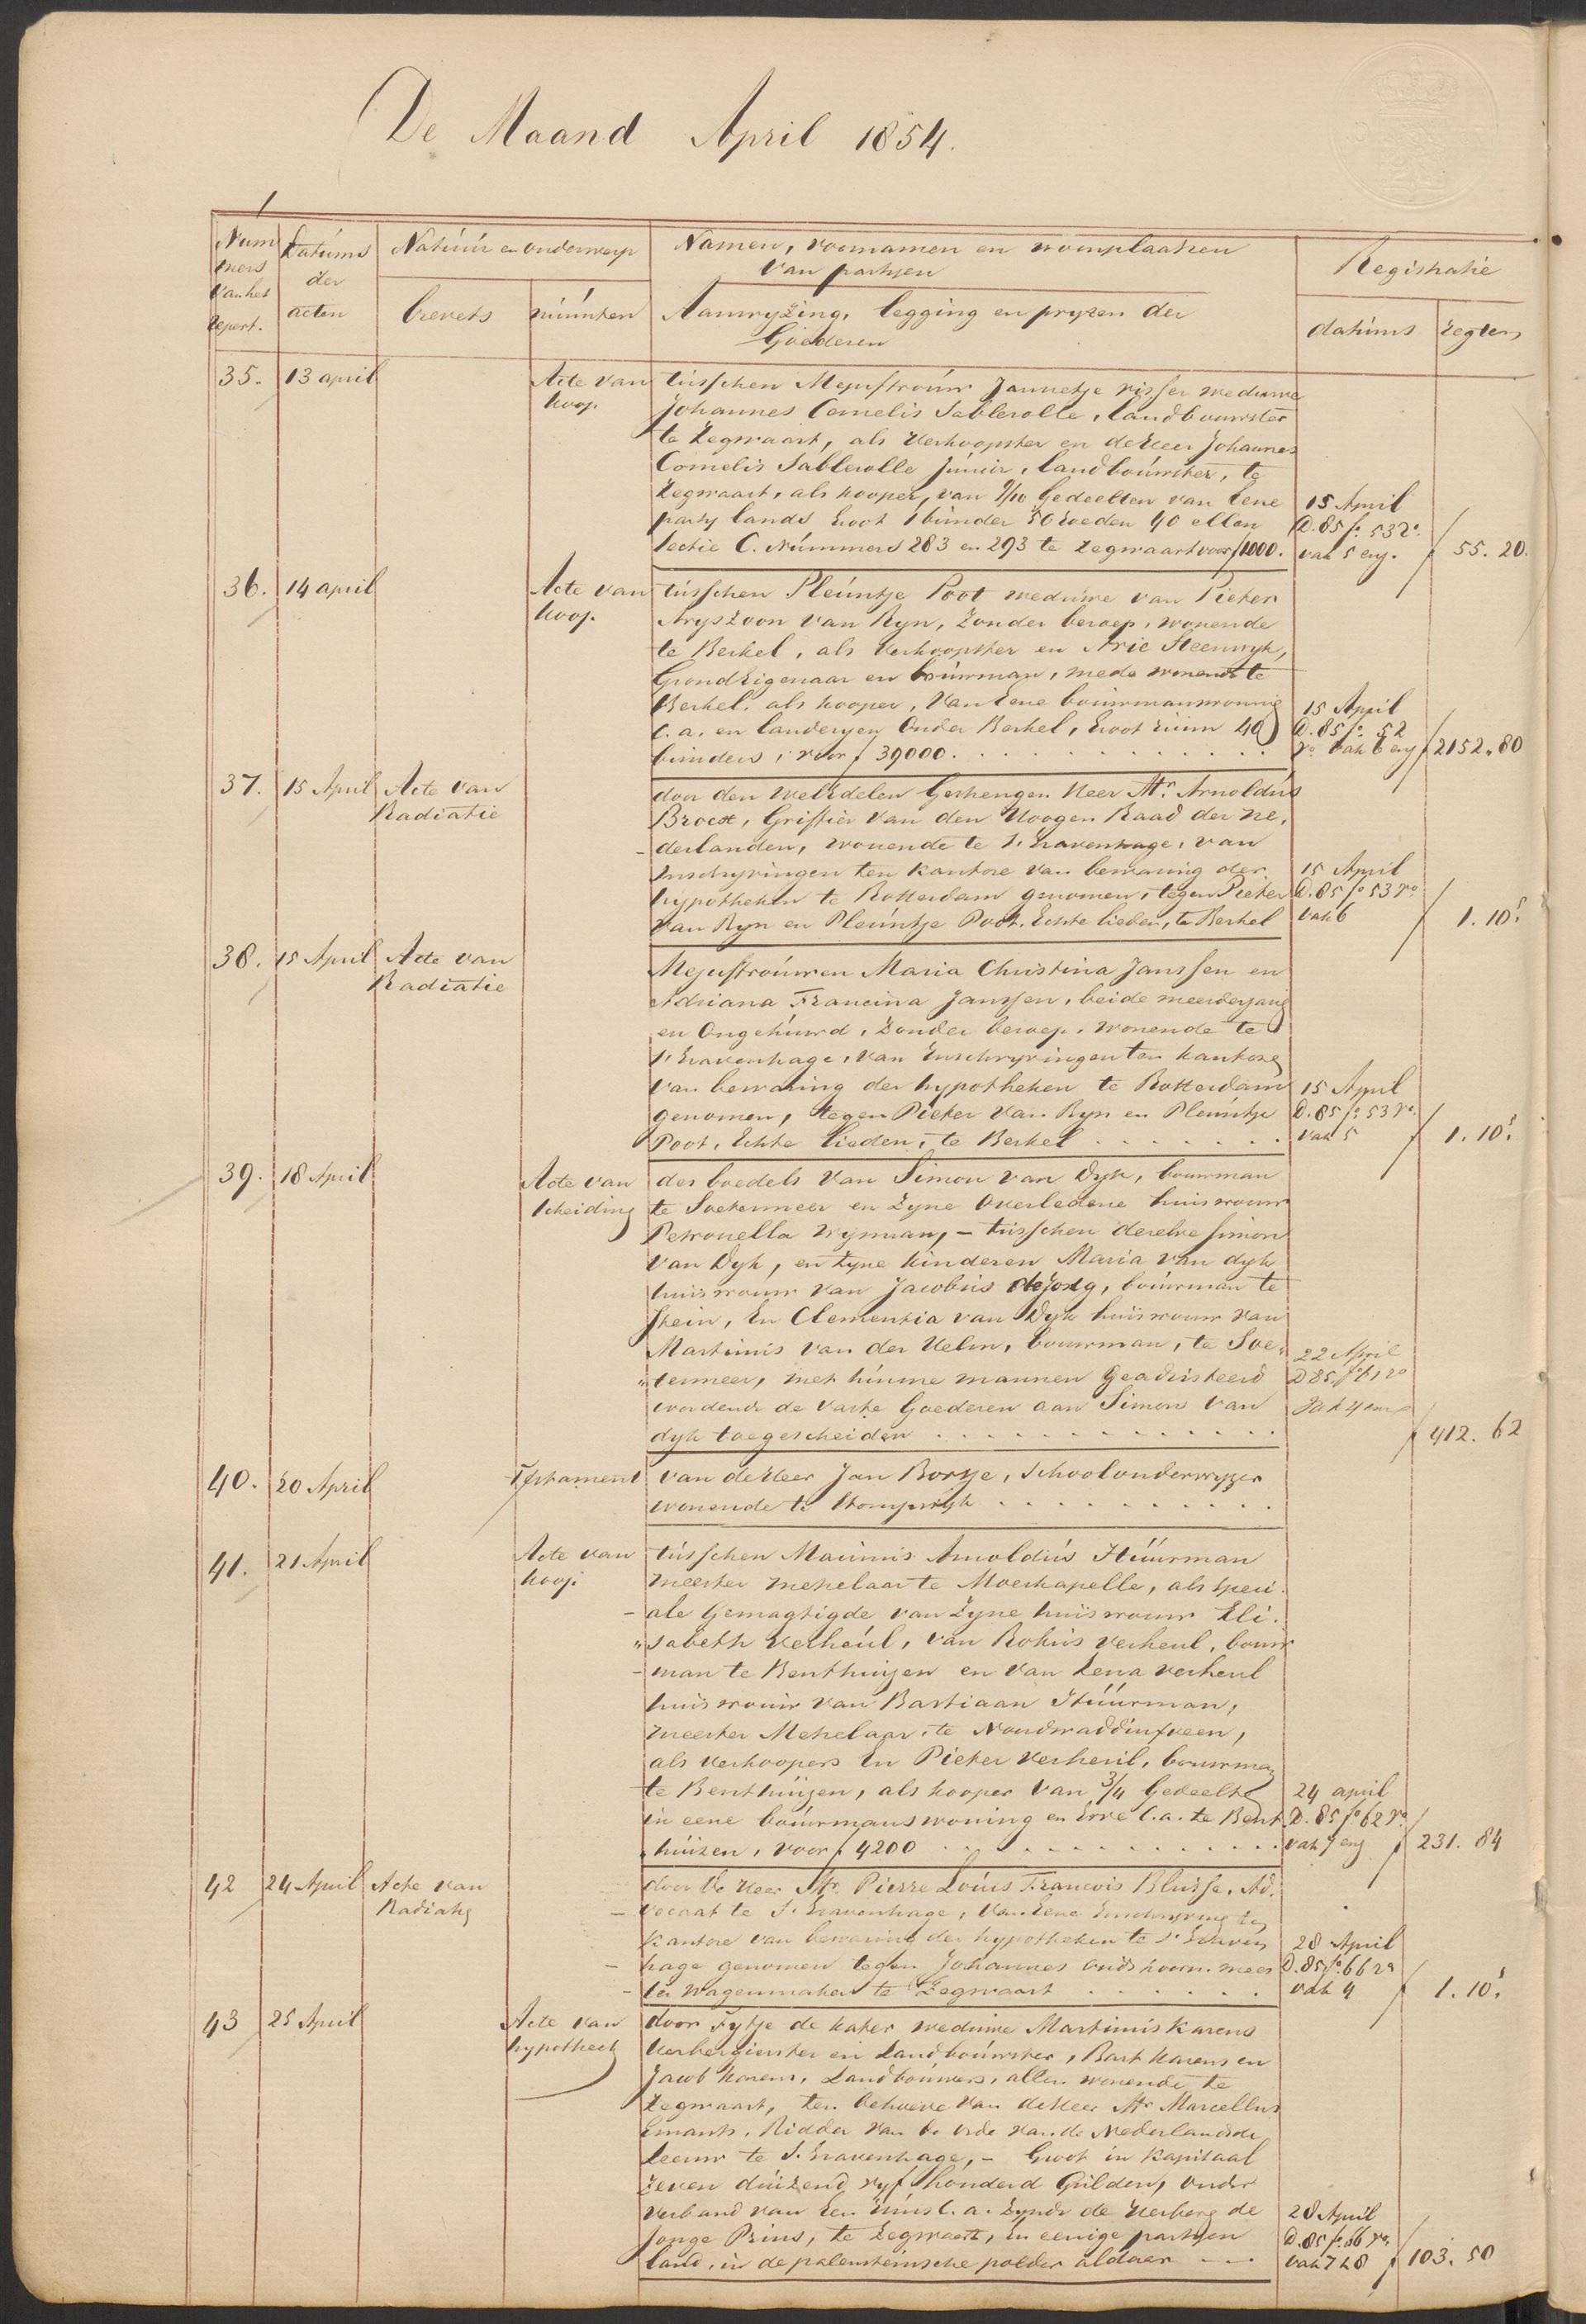 De Maand April 1854.
Num Datums Natuur en onderwerp Namen, voornamen en woonplaatsen Registratie
mers der van partyen
van het acten brevets minuten Aanwyzing, legging en pryzen der datums regten
repert. Goederen
35. 13 april Acte van tusschen Mejuffrouw Jannetje Visser weduwe
koop. Johannes Cornelis Sablerolle, landbouwster
te Zegwaart, als Verkoopster en de Heer Johannes
Cornelis Sablerolle Junior, landbouwster, te
Zegwaart, als kooper, van 9/10 Gedeelten van Eene 15 April
party lands Groot 1 bunder 56 roeden 40 ellen D. 85 fo. 53 ro.
Sectie C. Nummers 283 en 293 te Zegwaart voor f 1000. vak 5 env. f 55. 20.
36. 14 april Acte van tusschen Pleuntje Poot weduwe van Pieter
koop. Aryszoon van Ryn, Zonder beroep, wonende
te Berkel, als Verkoopster en Arie Steenwyk,
GrondEigenaar en bouwman, mede wonende te
Berkel, als kooper, Van Eene bouwmanswoning 15 April
C. a. en landeryen Onder Berkel, Groot ruim 40 D. 85 fo. 52
bunders, voor f 39000. ro. vak 6 env f 2152. 80
37. 15 April Acte van door den WelEdelen Gestrengen Heer Mr. Arnoldus
Radiatie Brocx, Griffier van den Hoogen Raad der Ne,
-derlanden, wonende te s' Gravenhage, van
Inschryvingen ten kantore van bewaring der 15 April
hypotheken te Rotterdam genomen, tegen Pieter D. 85 fo 53 ro
van Ryn en Pleuntje Poot, Echte lieden, te Berkel vak 6 f 1. 10⁵
38. 15 April Acte van Mejuffrouwen Maria Christina Janssen en
Radiatie Adriana Francina Janssen, beide meerderjarig
en Ongehuwd, Zonder beroep, wonende te
s' Gravenhage, van Inschryvingen ten kantore
van bewaring der hypotheken te Rotterdam 15 April
genomen, tegen Pieter van Ryn en Pleuntje D. 85 fo 53 ro.
Poot, Echte lieden, te Berkel vak 5 f 1. 10⁵
39. 18 April Acte van des boedels van Simon van Dyk, bouwman
Scheiding te Soetermeer en Zyne Overledene huisvrouw
Petronella Wyman, - tusschen dezelve Simon
van Dyk, en zyne kinderen Maria van dyk
huisvrouw van Jacobus de Jong, bouwman te
Stein, En Clementia van Dyk huisvrouw van
Martinus van der Helm, bouwman, te Soe" 22 April
"termeer, met hunne mannen Geadsisteerd D 85 fo 61 ro
wordende de Vaste Goederen aan Simon van Vak 4 env
dyk toegescheiden f 412. 62
40. 20 April Testament van de Heer Jan Bortje, Schoolonderwyzer
wonende te Stompwyk
41. 21 April Acte van tusschen Marinus Arnoldus Stuurman
koop. meester metselaar te Moerkapelle, als Speci.
-ale Gemagtigde van Zyne huisvrouw Eli.
"sabeth Verheul, van Rokus Verheul, bouw
-man te Benthuizen en van Lena Verheul
huisvrouw van Bastiaan Stuurman,
meester Metselaar, te Noordwaddinxveen,
als Verkoopers En Pieter Verheul, bouwman
te Benthuizen, als kooper van 3/4 Gedeelte 24 april
in eene bouwmanswoning en Erve C.a. te Bent D. 85 fo 62 ro.
huizen, voor f 4200 vak 7 env f 231. 84
42 24 April Acte van door de Heer Mr. Pierre Louis Francois Blusse, Ad.
Radiatie -vocaat te S. Gravenhage, Van Eene Inschryving ten
kantore van bewaring der hypotheken te s' Graven 28 April
-hage genomen tegen Johannes Oudshoorn mees D. 85 fo. 66 ro
-ter Wagenmaker te Zegwaart vak 4 f 1. 10⁵
43 25 April Acte van door Fytje de Kater weduwe Martinus Karens
hypotheek Herbergierster en Landbouwster, Bart Karens en
Jacob Karens, Landbouwers, allen wonende te
Zegwaart, ten behoeve van de Heer Mr Marcellus
Emants, Ridder van de orde van de Nederlandsche
Leeuw te S. Gravenhage, - Groot in Kapitaal
Zeven duizend vyf honderd Gulden, onder
Verband van Een huis C. a. Zynde de Herberg de 28 April
Jonge Prins, te Zegwaart, En eenige partyen D. 85 fo. 66 ro.
land, in de palensteinsche polder aldaar vak 7 & 8 f 103. 50